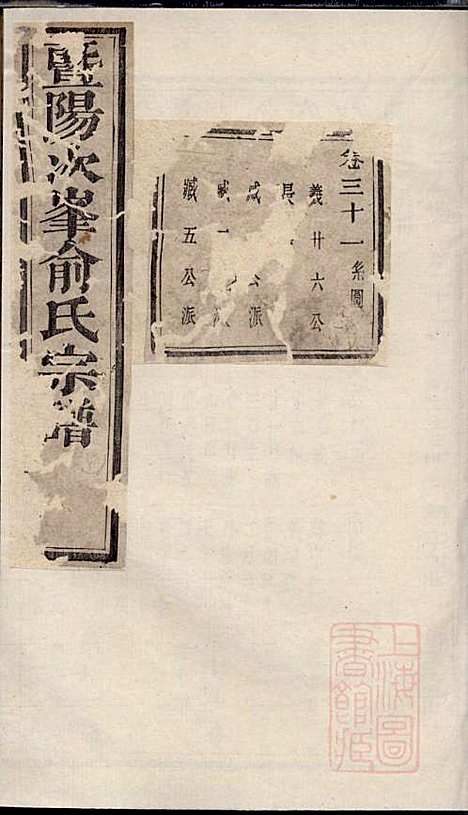 暨陽次峯俞氏宗譜
卷三十一 系圖
義廿六公
咸 公派
臧五公派
上海圖書館藏